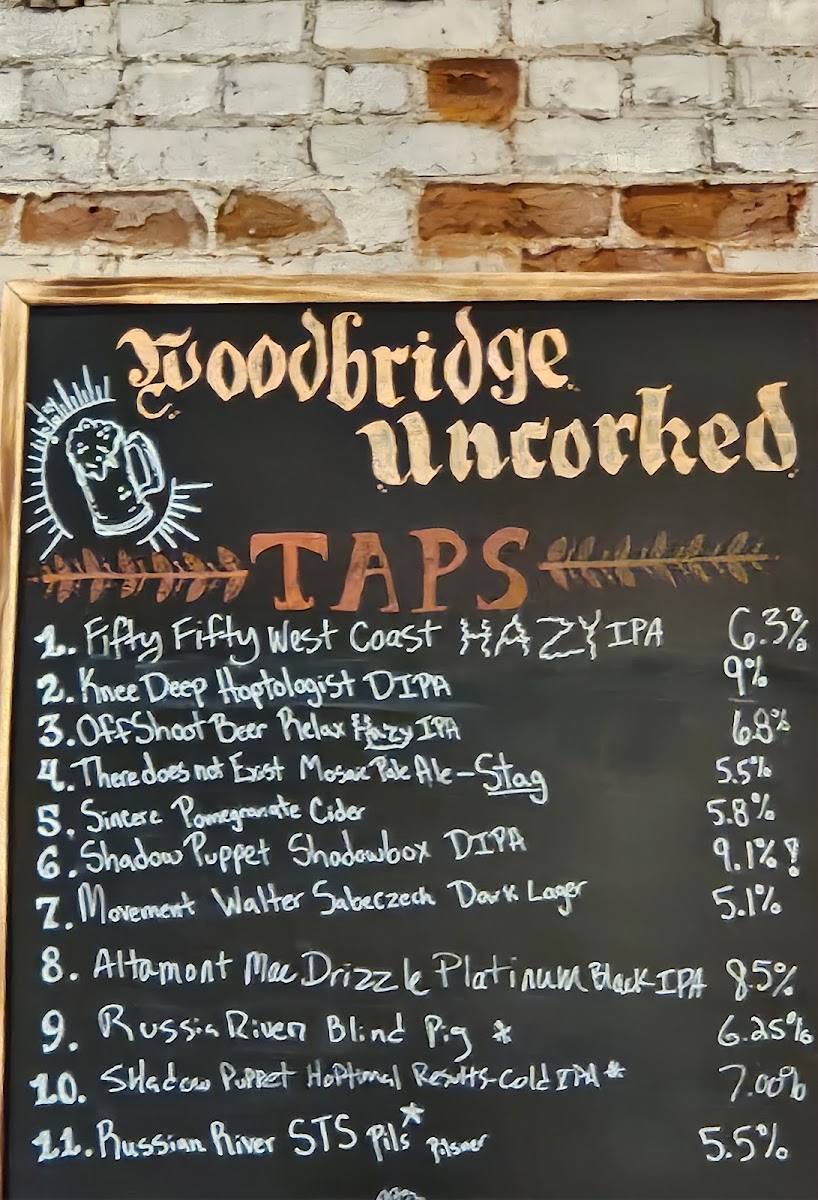 Woodbridge
Uncorked
TAPS
1. Fifty Fifty West Coast HAZY IPA 6.3%
2. Knee Deep Hoptologist DIPA 9%
3. Offshoot Beer Relax Hazy IPA 6.8%
4. There does not Exist Mosaic Pale Ale - Stag 5.5%
5. Sincere Pomegranate Cider 5.8%
6. Shadow Puppet Shadowbox DIPA 9.1%!
7. Movement Walter Sabeczech Dark Lager 5.1%
8. Altamont Mac Drizzle Platinum Black IPA 8.5%
9. Russia River Blind Pig * 6.25%
10. Shadow Puppet Hoptimal Results-Cold IPA * 7.00%
11. Russian River STS Pils * Pilsner 5.5%